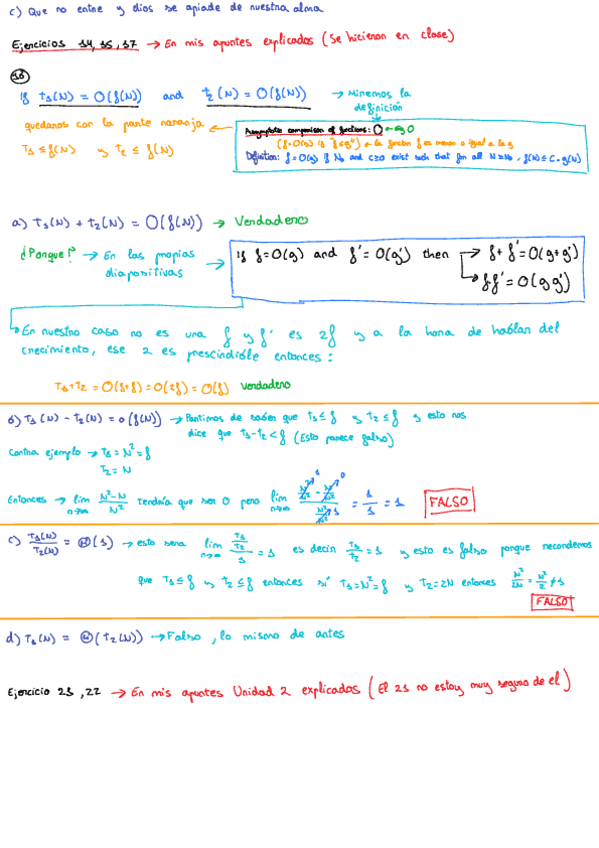 c) Que no entre y dios se apiade de nuestra alma
Ejercicios 14,15,17 → En mis apuntes explicados (Se hicieron en clase)
if T₁(N) = O(f(N)) and T₂(N) = O(f(N)) → Miremos la definición
quedarnos con la parte naranja
T₁ ≤ f(N) y T₂ ≤ f(N)
Asymptotic comparison of functions: O
(f=O(g) is "f≤g") → la función f es menor o igual a la g
Definition: f=O(g) if N₀ and C≥0 exist such that for all N≥N₀, f(N) ≤ C·g(N)
a) T₁(N) + T₂(N) = O(f(N)) → Verdadero
¿Porque? → En las propias diapositivas →
if f=O(g) and f'=O(g') then → f+f'=O(g+g')
→ f·f'=O(g·g')
En nuestro caso no es una f y f' es 2f y a la hora de hablar del
crecimiento, ese 2 es prescindible entonces:
T₁+T₂ = O(f+f) = O(2f) = O(f) Verdadero
b) T₁(N) - T₂(N) = o(f(N)) → Partimos de saber que T₁≤f y T₂≤f y esto nos
dice que T₁-T₂<f (Esto parece falso)
Contra ejemplo → T₁ = N² = f
T₂ = N
Entonces → lim n→∞ (N²-N)/N² tendría que ser 0 pero lim n→∞ (N²/N² - N/N²)/(N²/N²) = 1/1 = 1 FALSO
c) T₁(N)/T₂(N) = Θ(1) → esto sera lim n→∞ (T₁/T₂)/1 = 1 es decir T₁/T₂ = 1 y esto es falso porque recordemos
que T₁≤f y T₂≤f entonces si T₁=N²=f y T₂=2N entonces N²/2N = N²/2 ≠ 1
FALSO
d) T₁(N) = Θ(T₂(N)) → Falso, lo mismo de antes
Ejercicio 21,22 → En mis apuntes Unidad 2 explicados (El 21 no estoy muy seguro de el)